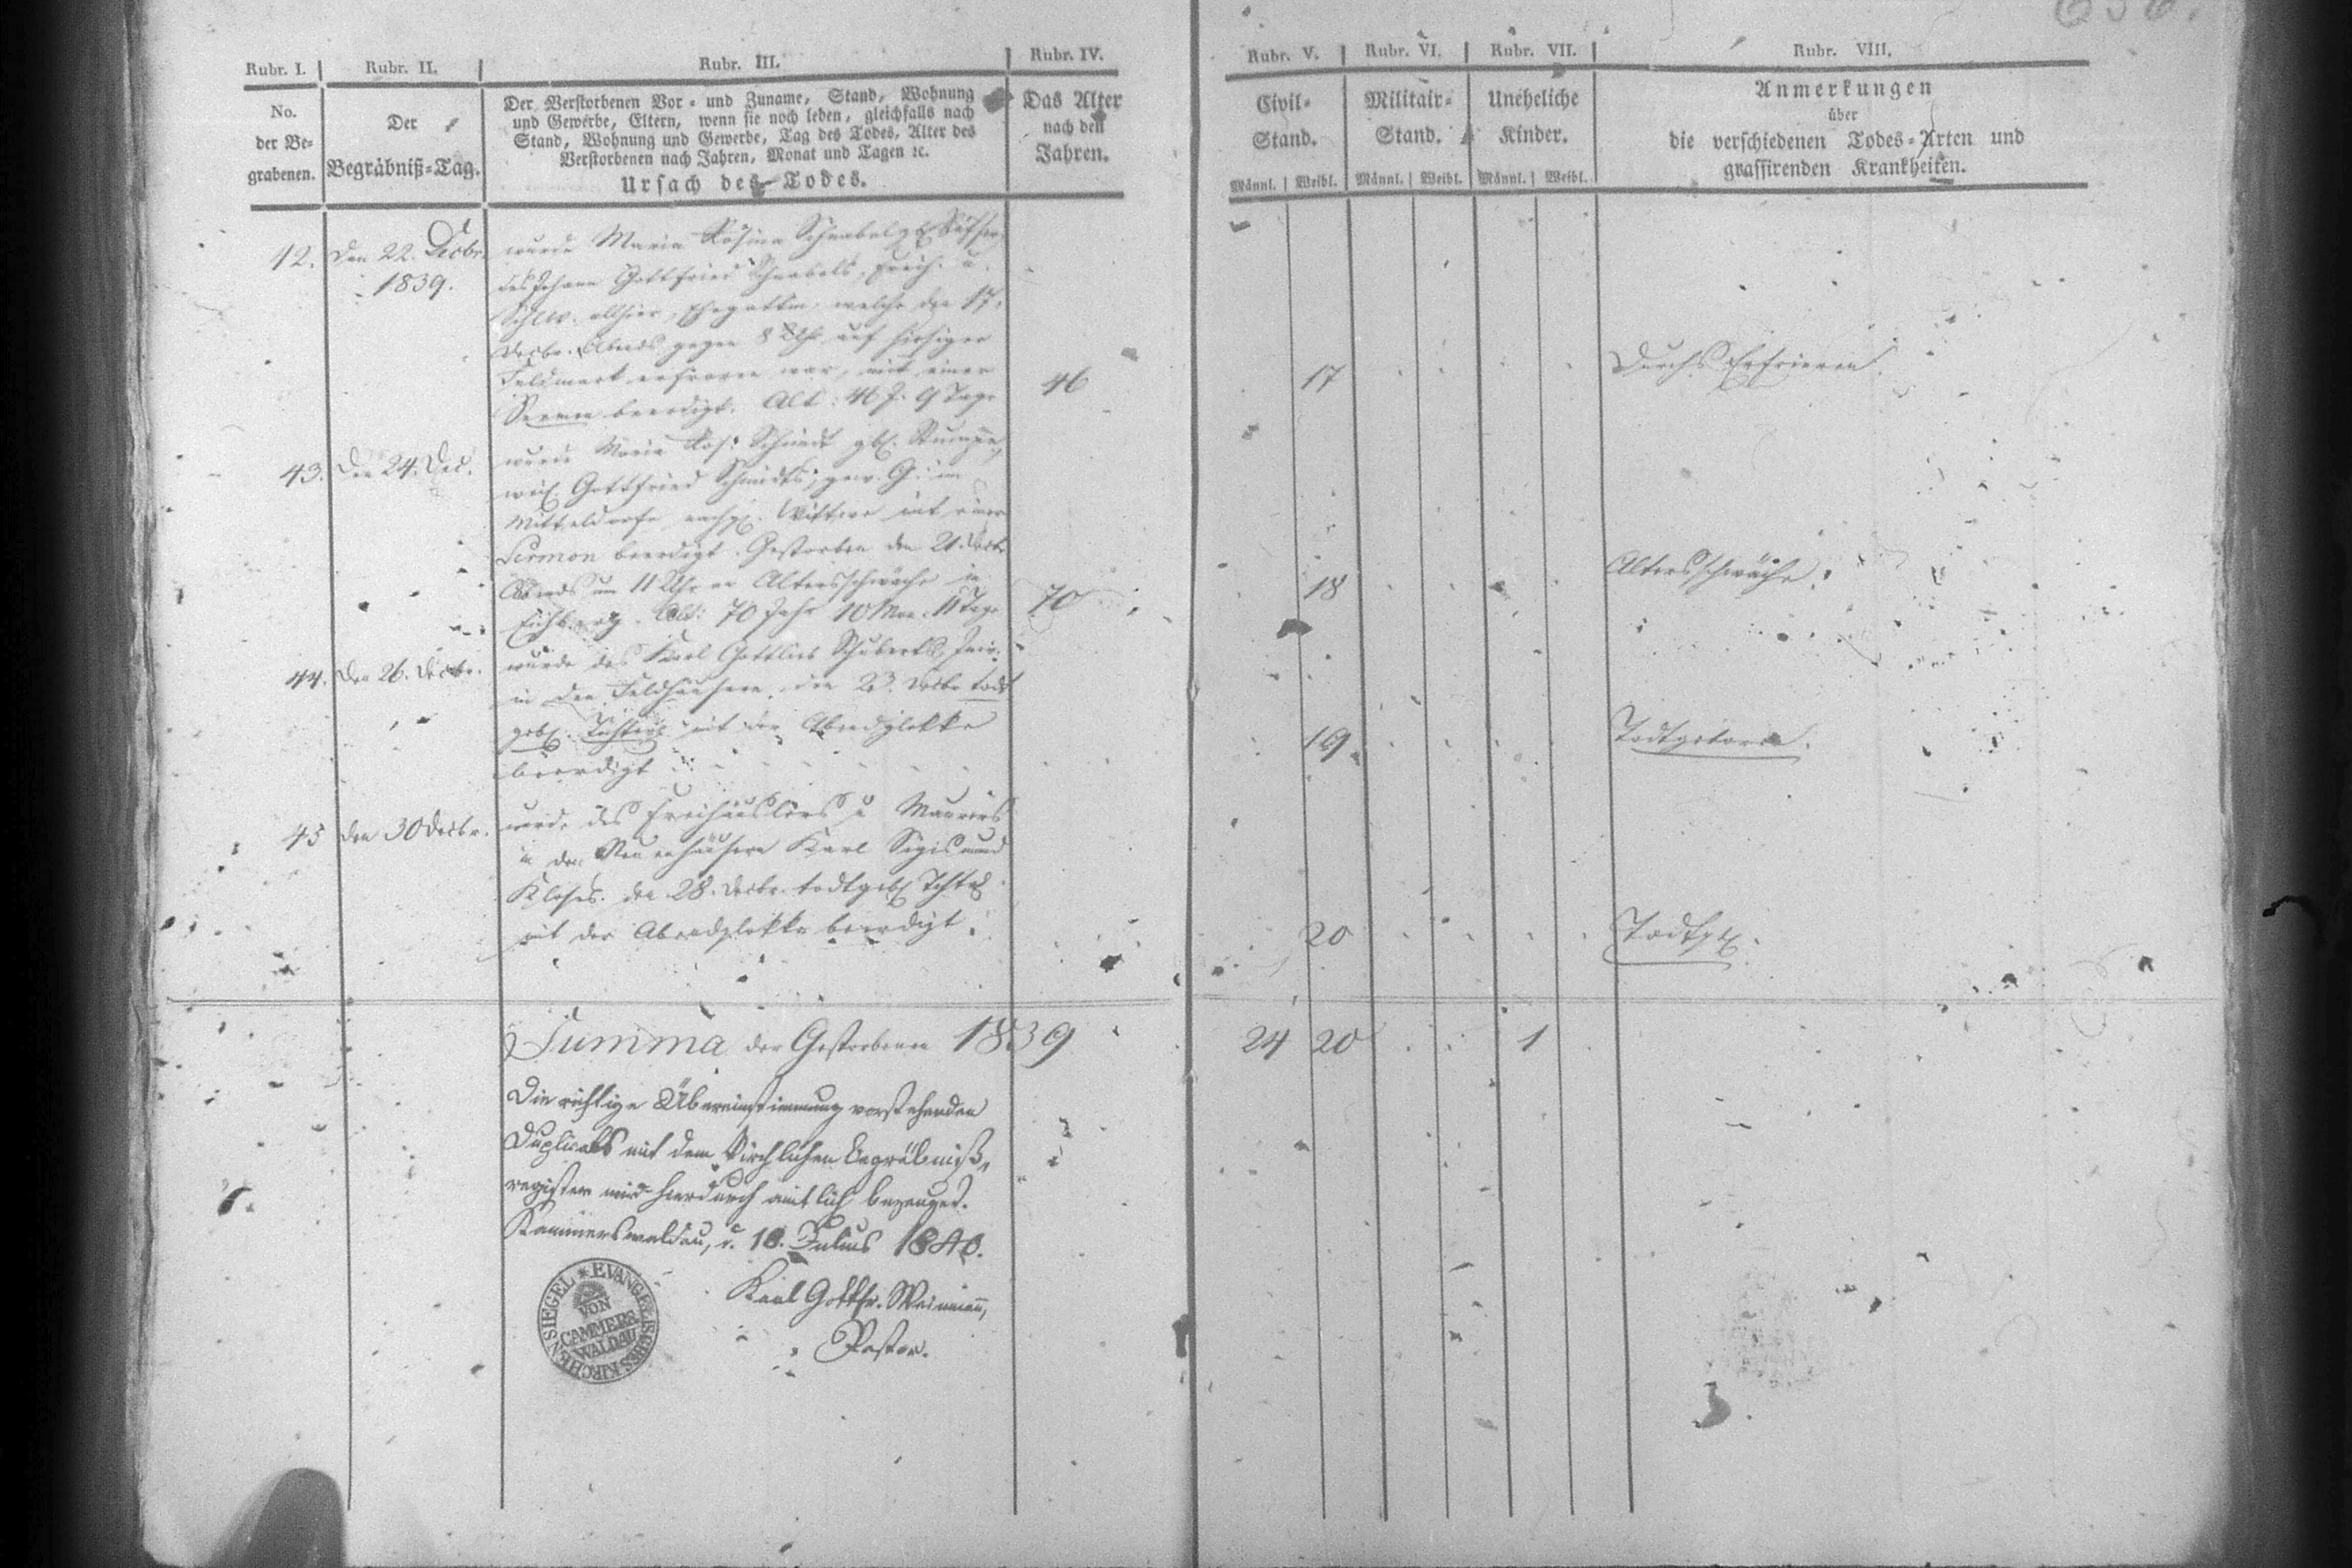 Rubr. I.
Rubr. II.
Rubr. III.
Rubr. IV.
Rubr. V.
Rubr. VI.
Rubr. VII.
Rubr. VIII.
No.
der Be-
grabenen.
Der
Begräbniß-Tag.
Der Verstorbenen Vor- und Zuname, Stand, Wohnung
und Gewerbe, Eltern, wenn sie noch leben, gleichfalls nach
Stand, Wohnung und Gewerbe, Tag des Todes, Alter des
Verstorbenen nach Jahren, Monat und Tagen ꝛc.
Ursach des Todes.
Das Alter
nach den
Jahren.
Civil-
Stand.
Männl. Weibl.
Militair-
Stand.
Männl. Weibl.
Uneheliche
Kinder.
Männl. Weibl.
Anmerkungen
über
die verschiedenen Todes-Arten und
grassirenden Krankheiten.
42. Den 22. Decbr.
1839.
wurde Maria Rosina Schnabel geb.
des Johann Gottfried Schnabels,
allhier, Ehegattin, welche den 17.
Decbr. Abends gegen 8 Uhr auf hiesiger
Feldmark erfroren war, mit einer
Sermon beerdigt. Alt: 46 J. 9 Tage
46
17
Durchs Erfrieren.
43. Den 24. Dec.
wurde Maria Ros. Schmidt geb. Stumpe,
weil. Gottfried Schmidts, gew. G. im
Mitteldorfe, nachgel. Wittwe mit einer
Sermon beerdigt. Gestorben den 21 Decbr.
Abends um 11 Uhr an Altersschwäche in
Eichberg. Alt: 70 Jahr 10 Mon. 11 Tage
70
18
Altersschwäche.
44. Den 26. Decbr.
wurde des Karl Gottlieb Schuberts, Inw.
in den Feldhäusern, den 23. Decbr. todt
geb. Töchterl. mit der Abendglokke
beerdigt
19
Todtgeboren.
45 den 30 Decbr.
wurde des Freihäuslers u. Maurers
in den Neuenhäusern Karl Sigismund
Kloses den 28. Decbr. todtgeb. Tchtrl.
mit der Abendglokke beerdigt.
20
Todtgeb.
Summa der Gestorbenen 1839
24 20 1
Die richtige Übereinstimmung vorstehenden
Duplicats mit dem kirchlichen Begräbniß-
register wird hierdurch amtlich bezeuget.
Kammerswaldau, d. 10. Julius 1840.
Karl Gottfr. Weinmann,
Pastor.
EVANGELISCHES KIRCHENSIEGEL
VON
CAMMERS
WALDAU